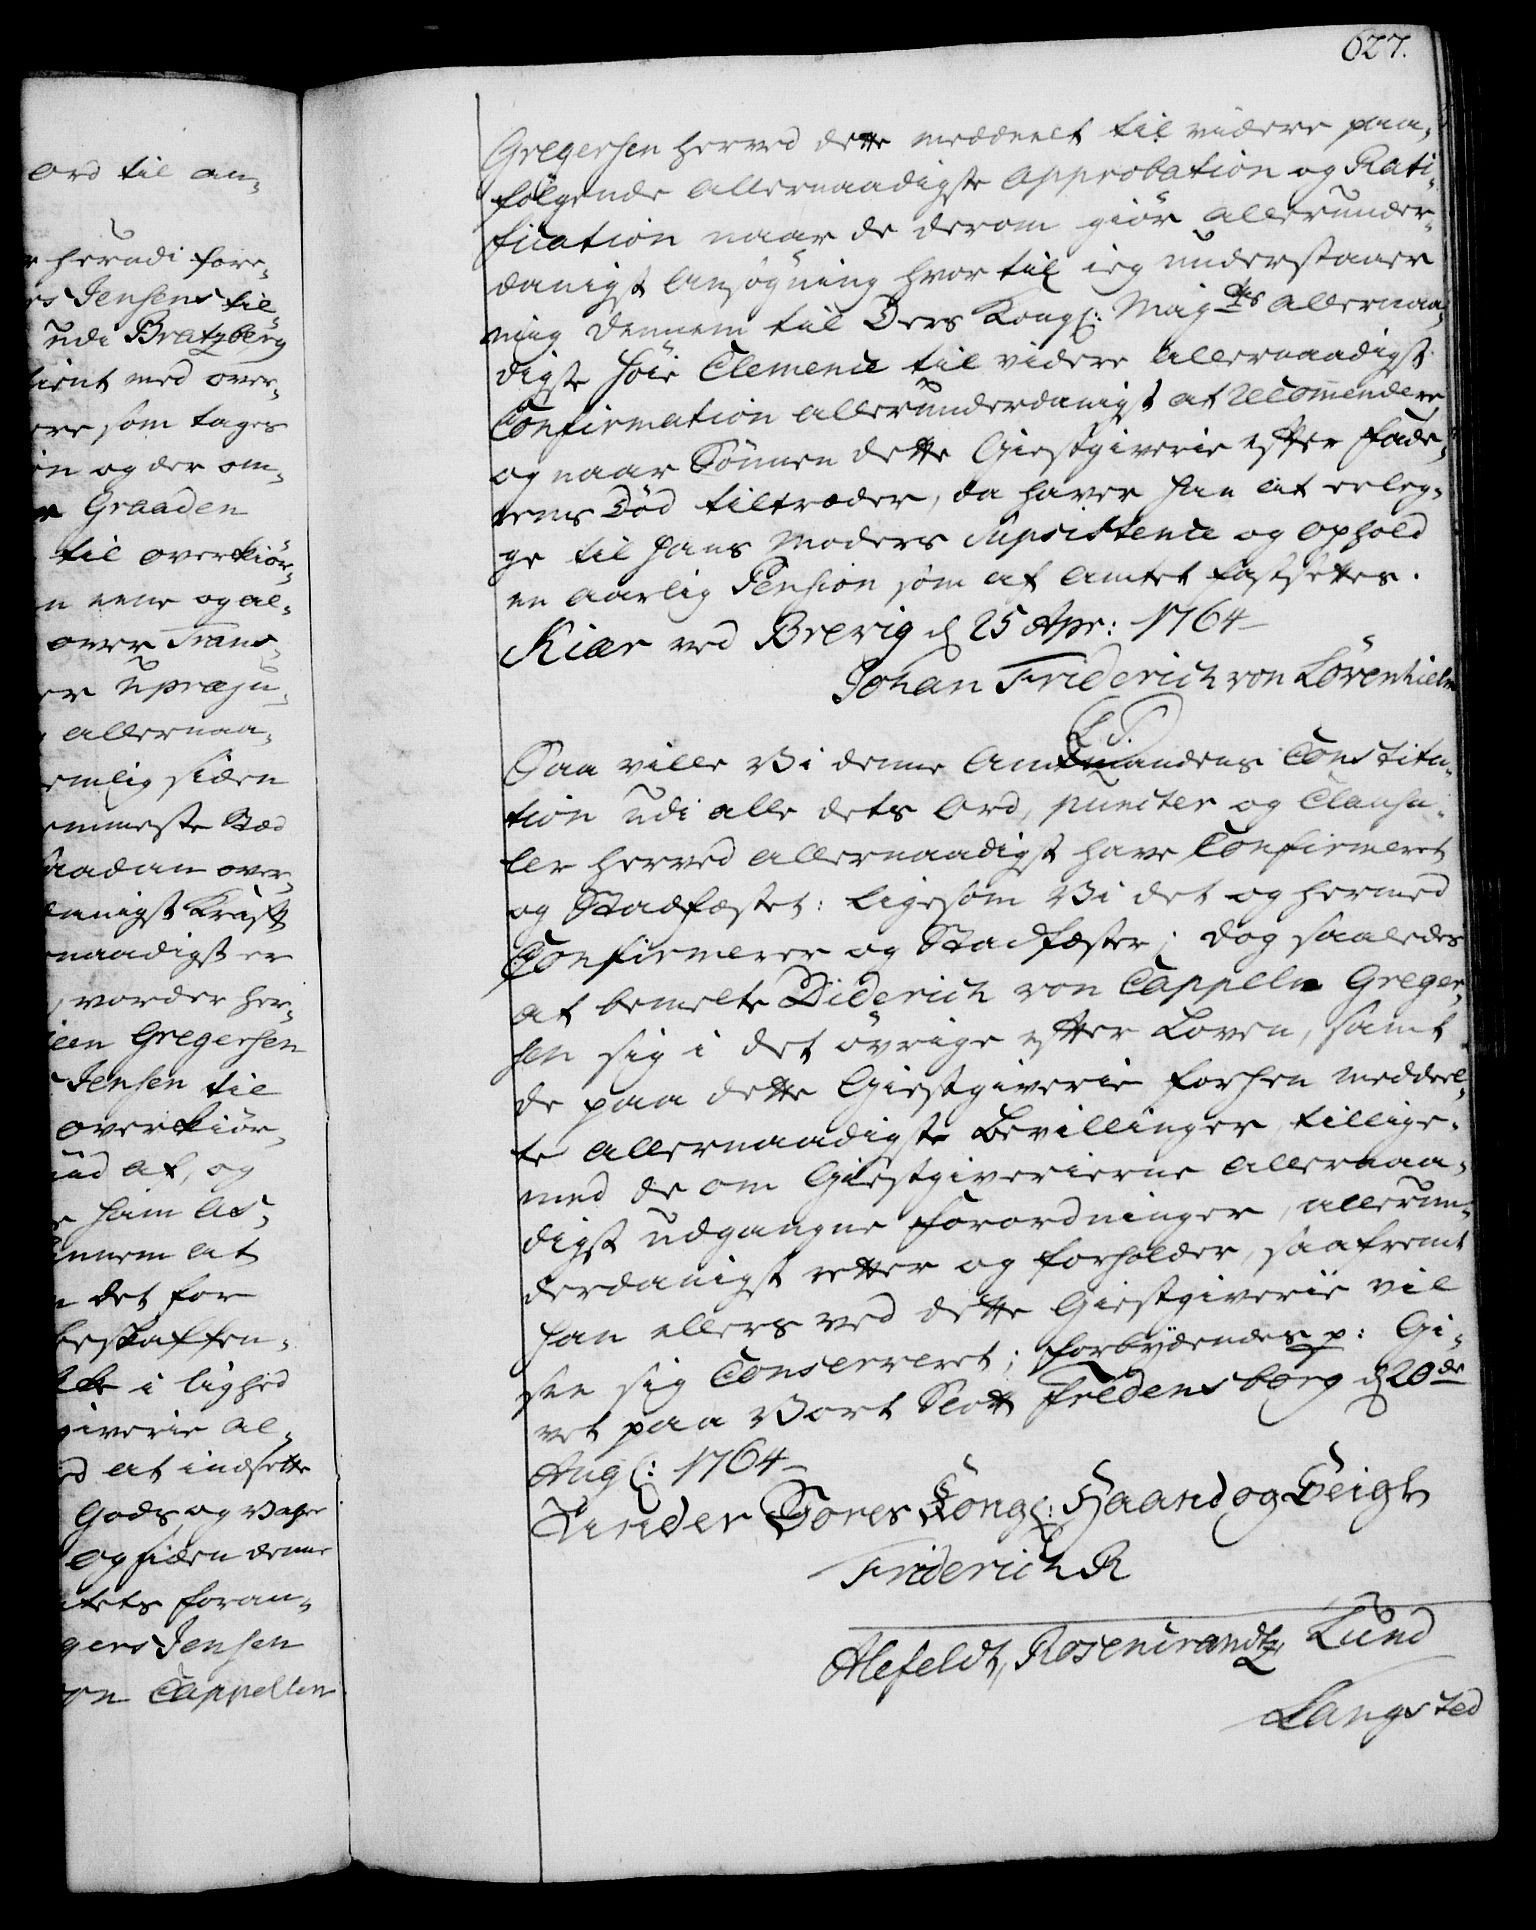 627.
ord til an¬
herudi fore¬
rs Jensens til
udi Bratzberg
tient med over¬
ere som tages
en og der om¬
Graaden
til overkiör¬
n eene og al¬
over Trans¬
er upræju¬
allernaa¬
emlig siden
emmeste Stæd
saadan over¬
danigst Kraft
naadigst er
, vorder her¬
Gregersen
Jensen til
overkiör¬
ud af, og
ham As¬
ennem at
det for
beskaffen¬
i lighed
giverie al¬
ed at indsette
Gods og Vahre
og siden denne
foran¬
gers Jensen
von Cappellen
Gregersen herved dette meddeelt til videre paa¬
fölgende allernaadigste Approbation og Rati¬
fication naar de derom giör allerunder¬
danigst Ansögning hvor til ieg understaaer
mig dennem til Ders Kongl: Mayts allernaa¬
digste höie Clemence til videre allernaadigst
Confirmation allerunderdanigst at recommendere
og naar Sönnen dette Giestgiverie efter Fade¬
rens Död tiltræder, da haver han at erleg¬
ge til hans Moders Supsistence og ophold
en aarlig Pension som af Amtet fastsettes.
Kiær ved Brevig d 25 Apr: 1764
Johan Friderich von Lövenhielm
L.S.
Saa ville Vi denne Amtmandens Constitu¬
tion udi alle dets Ord, puncter og Clausu¬
ler herved allernaadigst have Confirmeret
og Stadfæstet: ligesom Vi det og hermed
Confirmerer og Stadfæster; dog saaledes
at bemelte Diderich von Cappeln Greger¬
sen sig i det övrige efter Loven, samt
de paa dette Giestgiverie forhen meddeel¬
te allernaadigste Bevillinger tillige¬
med de om Giestgiverierne allernaa¬
digst udgangne Forordninger, allerun¬
derdanigst retter og forholder, saafremt
han ellers ved dette Giestgiverie vil
see sig Conserveret; Forbydendes p: Gi¬
vet paa Vort Slott Fredensborg d 20de
Aug: 1764
Under Vores Kongl: Haand og Seigl
Friderich R
Alefeldt, Rosencrandtz, Lund
Langsted